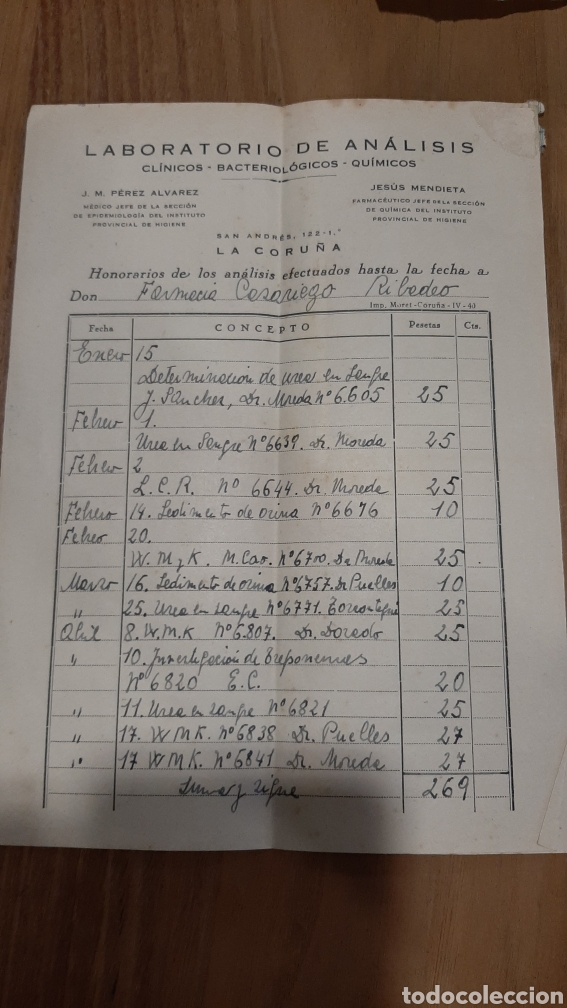 LABORATORIO DE ANÁLISIS
CLÍNICOS - BACTERIOLÓGICOS - QUÍMICOS
J. M. PÉREZ ALVAREZ
MÉDICO JEFE DE LA SECCIÓN
DE EPIDEMIOLOGÍA DEL INSTITUTO
PROVINCIAL DE HIGIENE
JESÚS MENDIETA
FARMACÉUTICO JEFE DE LA SECCIÓN
DE QUÍMICA DEL INSTITUTO
PROVINCIAL DE HIGIENE
SAN ANDRÉS, 122-1.°
LA CORUÑA
Honorarios de los análisis efectuados hasta la fecha a
Don Farmacia Casariego Ribadeo
Imp. Moret-Coruña-IV-43
Fecha CONCEPTO Pesetas Cts.
Enero 15
Determinación de urea en sangre
J. Sánchez, Dr. Moreda nº 6.605 25
Febrero 1.
Urea en Sangre nº 6639. Dr. Moreda 25
Febrero 2
L.C.R. nº 6644. Dr. Moreda 25
Febrero 14. Sedimento de orina nº 6676 10
Febrero 20.
W. M y K. M. Cao. nº 6700. Dr. Moreda 25
Marzo 16. Sedimento de orina nº 6757. Dr Puelles 10
" 25. Urea en sangre nº 6771. 25
Abril 8. W.M.K nº 6.807. Dr. Dorado 25
" 10. Investigación de treponemas
nº 6820 E.C. 20
" 11. Urea en sangre nº 6821 25
" 17. WMK. nº 6838 Dr. Puelles 27
" 17 WMK. nº 6841 Dr. Moreda 27
Suma y sigue 269
todocoleccion